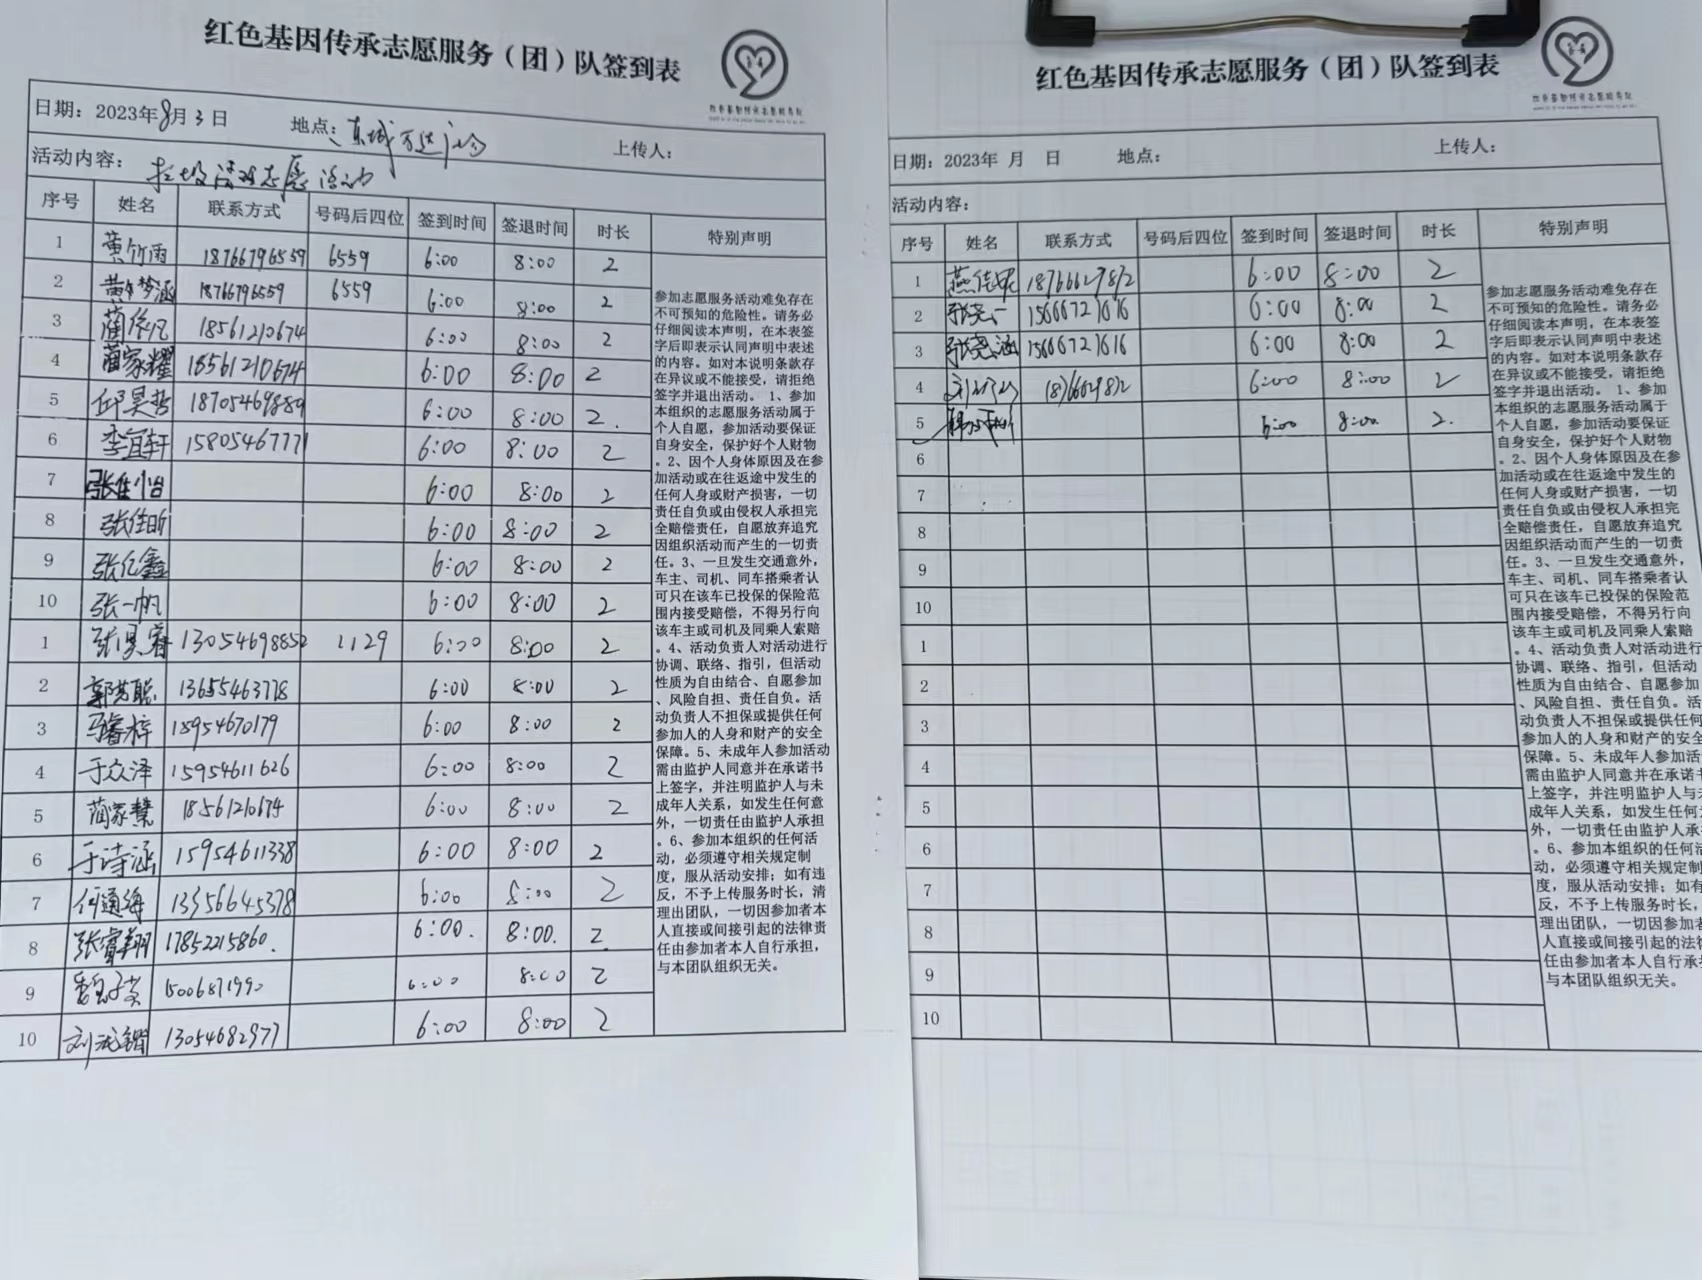 红色基因传承志愿服务（团）队签到表
日期：2023年8月3日 地点：东城万达广场 上传人：
活动内容：垃圾清理志愿活动
序号 姓名 联系方式 号码后四位 签到时间 签退时间 时长 特别声明
1 黄竹雨 18766796559 6559 6:00 8:00 2
2 黄梦涵 18766796559 6559 6:00 8:00 2
3 18561210674 6:00 8:00 2
4 蔺家耀 18561210674 6:00 8:00 2
5 邱昊哲 18705469889 6:00 8:00 2.
6 李宜轩 15805467771 6:00 8:00 2
7 张佳怡 6:00 8:00 2
8 张佳昕 6:00 8:00 2
9 张亿鑫 6:00 8:00 2
10 张一帆 6:00 8:00 2
1 张昊睿 13054698852 1129 6:00 8:00 2
2 13655463778 6:00 8:00 2
3 马睿梓 18954670179 6:00 8:00 2
4 于众泽 15954611626 6:00 8:00 2
5 蔺家慧 18561210674 6:00 8:00 2
6 于诗涵 15954611338 6:00 8:00 2
7 何通海 13356645378 6:00 8:00 2
8 张睿翔 17852215860. 6:00. 8:00. 2
9 15006871990 6:00 8:00 2
10 13054682977 6:00 8:00 2
参加志愿服务活动难免存在
不可预知的危险性。请务必
仔细阅读本声明，在本表签
字后即表示认同声明中表述
的内容。如对本说明条款存
在异议或不能接受，请拒绝
签字并退出活动。 1、参加
本组织的志愿服务活动属于
个人自愿，参加活动要保证
自身安全，保护好个人财物
。2、因个人身体原因及在参
加活动或在往返途中发生的
任何人身或财产损害，一切
责任自负或由侵权人承担完
全赔偿责任，自愿放弃追究
因组织活动而产生的一切责
任。3、一旦发生交通意外，
车主、司机、同车搭乘者认
可只在该车已投保的保险范
围内接受赔偿，不得另行向
该车主或司机及同乘人索赔
。4、活动负责人对活动进行
协调、联络、指引，但活动
性质为自由结合、自愿参加
、风险自担、责任自负。活
动负责人不担保或提供任何
参加人的人身和财产的安全
保障。5、未成年人参加活动
需由监护人同意并在承诺书
上签字，并注明监护人与未
成年人关系，如发生任何意
外，一切责任由监护人承担
。6、参加本组织的任何活
动，必须遵守相关规定制
度，服从活动安排；如有违
反，不予上传服务时长，清
理出团队，一切因参加者本
人直接或间接引起的法律责
任由参加者本人自行承担，
与本团队组织无关。
红色基因传承志愿服务（团）队签到表
日期：2023年 月 日 地点： 上传人：
活动内容：
序号 姓名 联系方式 号码后四位 签到时间 签退时间 时长 特别声明
1 18766629812 6:00 8:00 2
2 15666727616 6:00 8:00 2
3 张尧涵 15666727616 6:00 8:00 2
4 6:00 8:00 2
5 6:00 8:00 2.
6
7
8
9
10
1
2
3
4
5
6
7
8
9
10
参加志愿服务活动难免存在
不可预知的危险性。请务必
仔细阅读本声明，在本表签
字后即表示认同声明中表述
的内容。如对本说明条款存
在异议或不能接受，请拒绝
签字并退出活动。 1、参加
本组织的志愿服务活动属于
个人自愿，参加活动要保证
自身安全，保护好个人财物
。2、因个人身体原因及在参
加活动或在往返途中发生的
任何人身或财产损害，一切
责任自负或由侵权人承担完
全赔偿责任，自愿放弃追究
因组织活动而产生的一切责
任。3、一旦发生交通意外，
车主、司机、同车搭乘者认
可只在该车已投保的保险范
围内接受赔偿，不得另行向
该车主或司机及同乘人索赔
。4、活动负责人对活动进行
协调、联络、指引，但活动
性质为自由结合、自愿参加
、风险自担、责任自负。活
动负责人不担保或提供任何
参加人的人身和财产的安全
保障。5、未成年人参加活
需由监护人同意并在承诺书
上签字，并注明监护人与未
成年人关系，如发生任何意
外，一切责任由监护人承
。6、参加本组织的任何活
动，必须遵守相关规定制
度，服从活动安排；如有
反，不予上传服务时长，
理出团队，一切因参加者
人直接或间接引起的法律
任由参加者本人自行承担
与本团队组织无关。